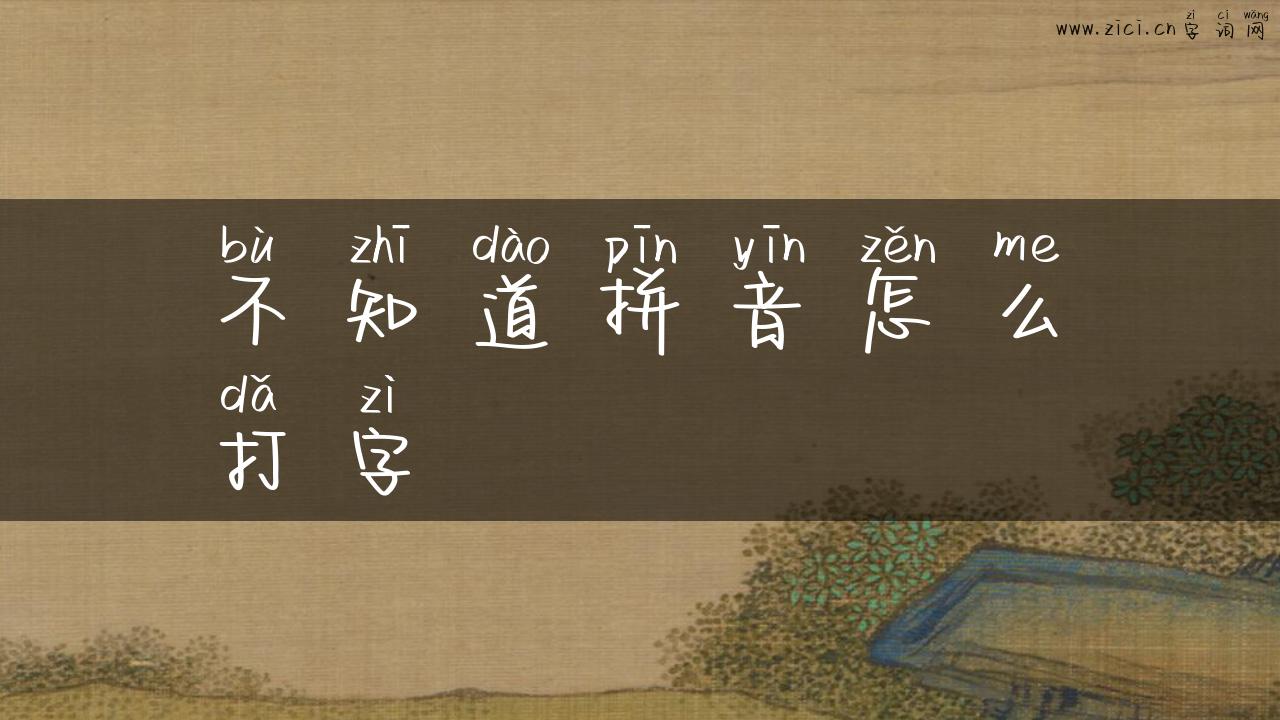 zì cí wǎng
www.zici.cn 字 词 网
bù zhī dào pīn yīn zěn me
不 知 道 拼 音 怎 么
dǎ zì
打 字